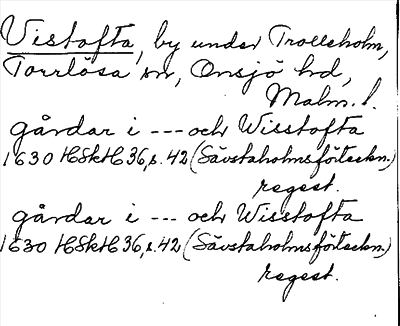 Vistofta, by under Trolleholm,
Torrlösa sn, Onsjö hd,
Malm. l.
gårdar i --- och Wisstofta
1630 HSkH 36, s. 42 (Sävstaholmsförteckn.)
regest.
gårdar i --- och Wisstofta
1630 HSkH 36, s. 42 (Sävstaholmsförteckn.)
regest.